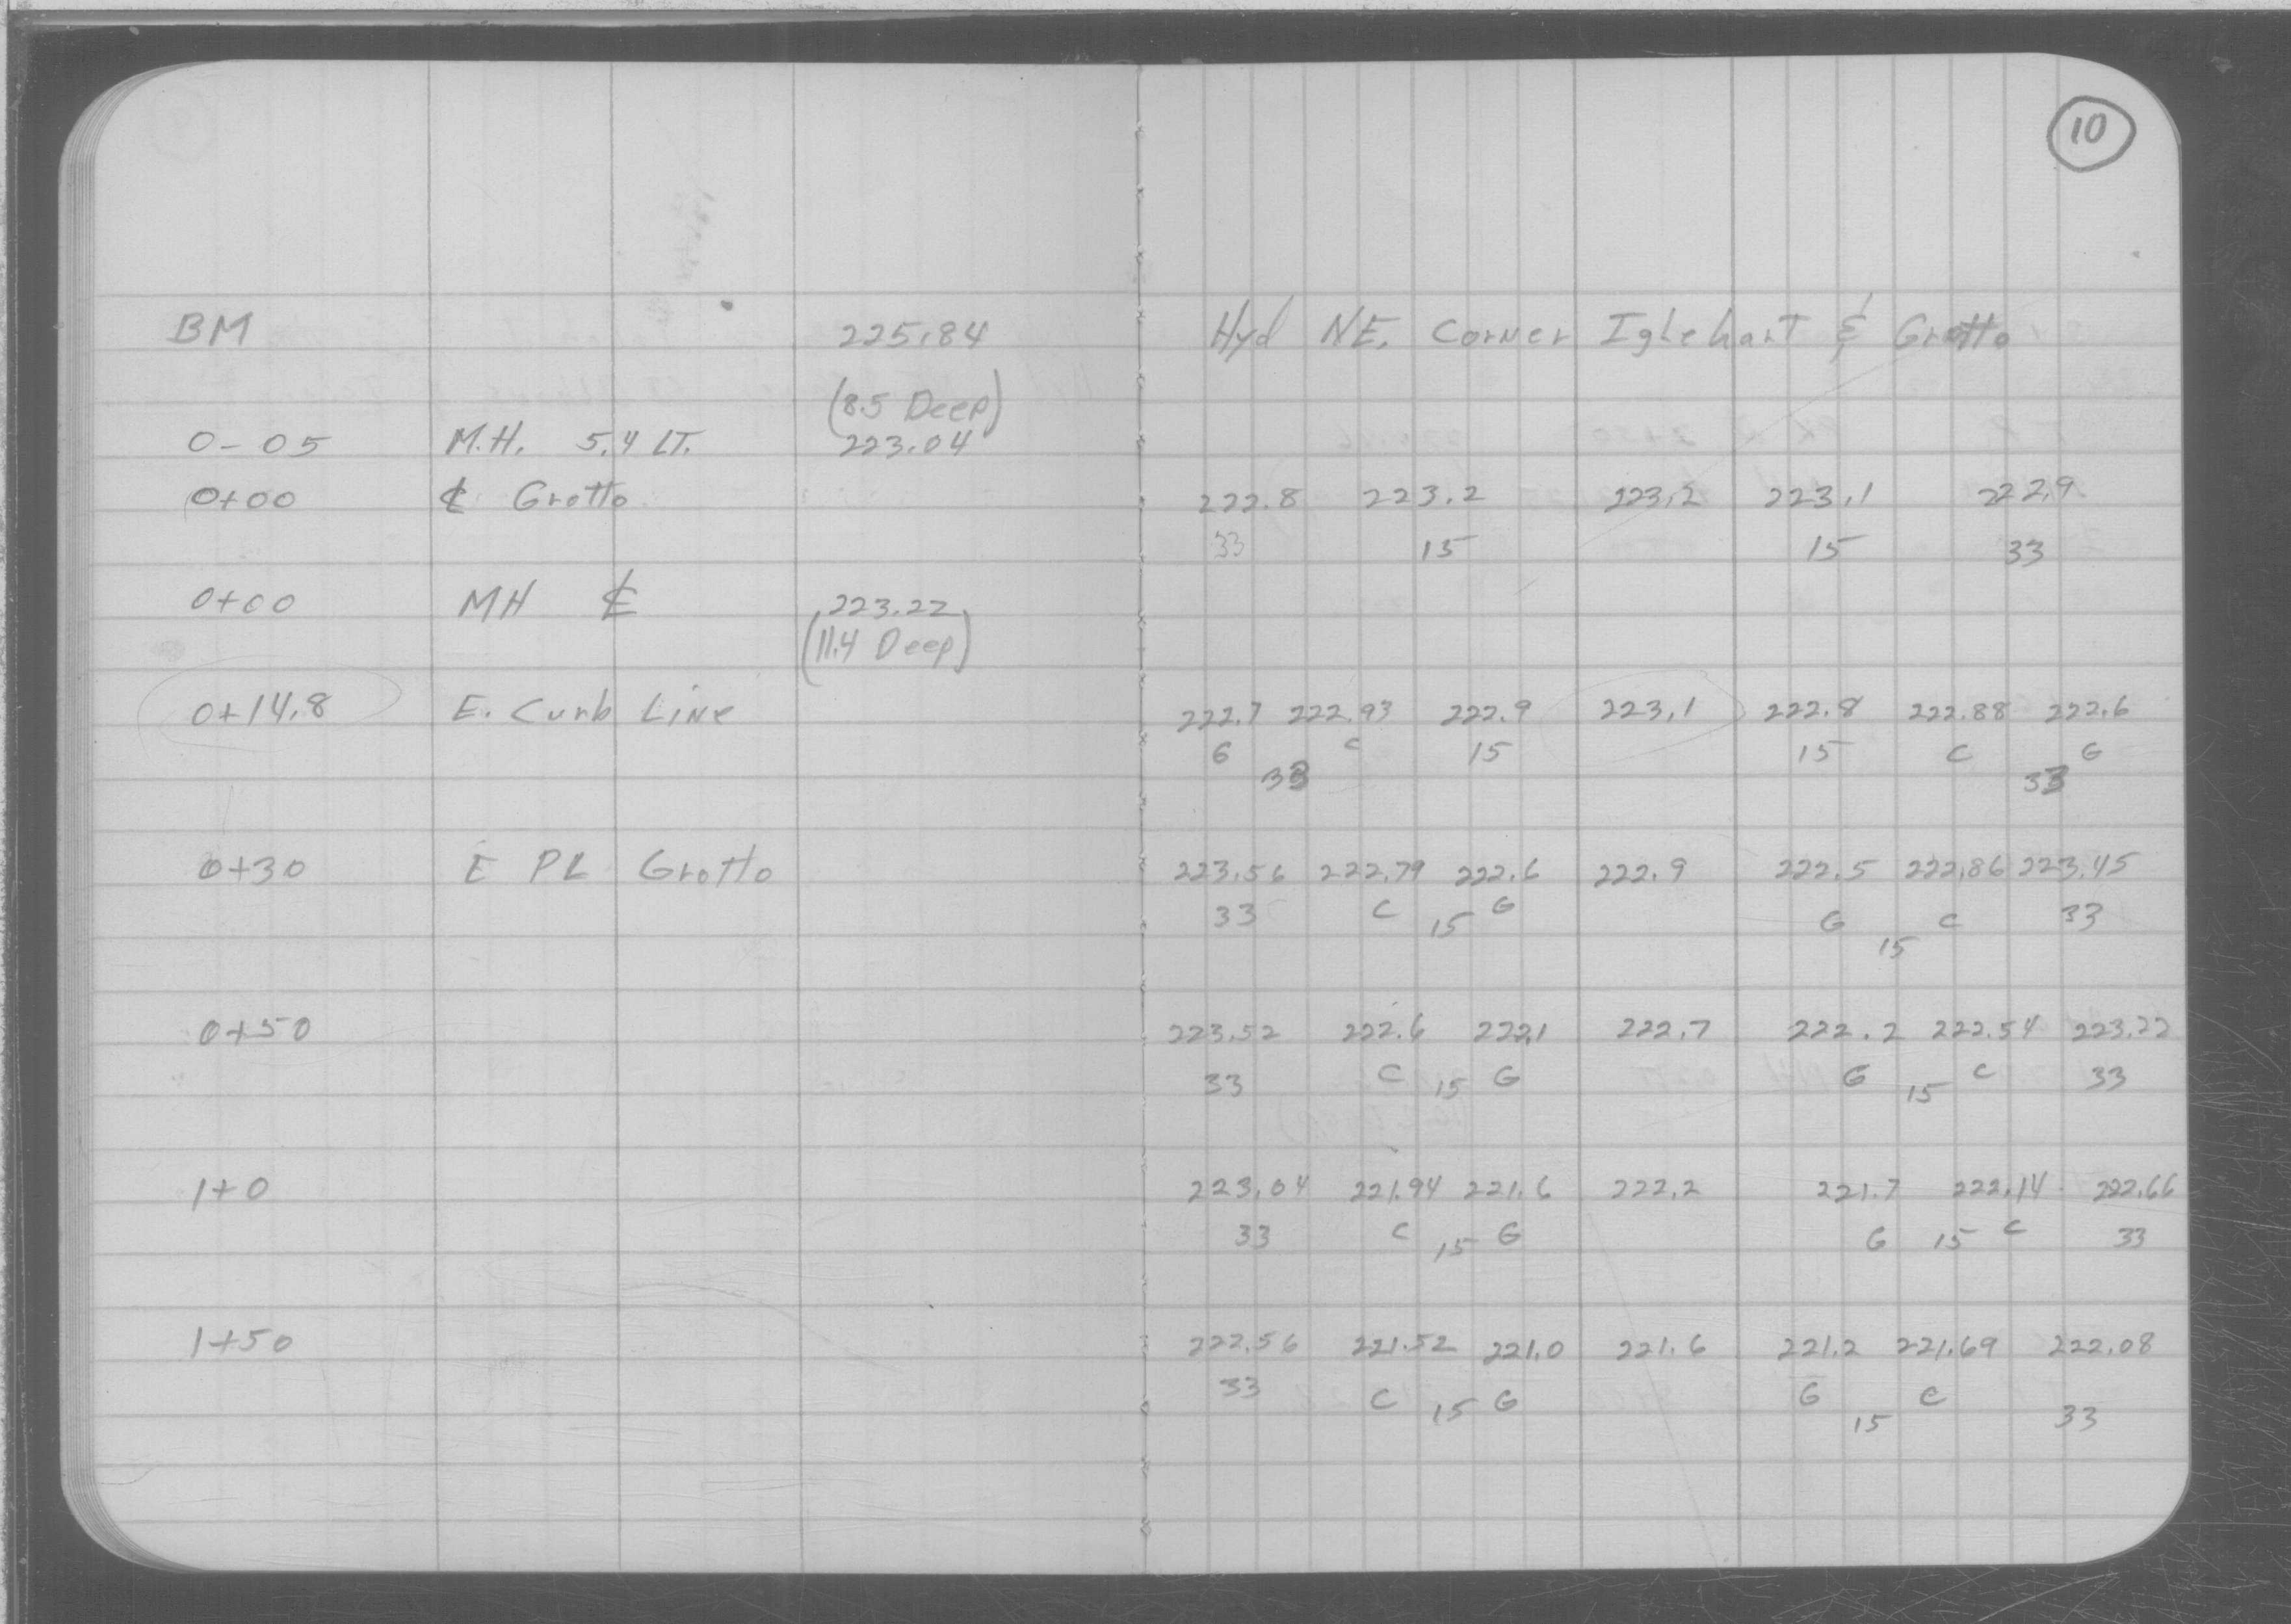 10
BM 225.84 Hyd N.E. Corner Iglehart & Grotto
(8.5 Deep)
0-05 M.H. 5.4 LT. 223.04
0+00 ℄ Grotto 222.8 223.2 223.2 223.1 222.9
33 15 15 33
0+00 MH ℄ 223.22
(11.4 Deep)
0+14.8 E. Curb Line 222.7 222.93 222.9 223.1 222.8 222.88 222.6
G C 15 15 C G
33 33
0+30 E PL Grotto 223.56 222.79 222.6 222.9 222.5 222.86 223.45
33 C 15 G G 15 C 33
0+50 223.52 222.6 222.1 222.7 222.2 222.54 223.22
33 C 15 G G 15 C 33
1+0 223.04 221.94 221.6 222.2 221.7 222.14 222.66
33 C 15 G G 15 C 33
1+50 222.56 221.52 221.0 221.6 221.2 221.69 222.08
33 C 15 G G 15 C 33